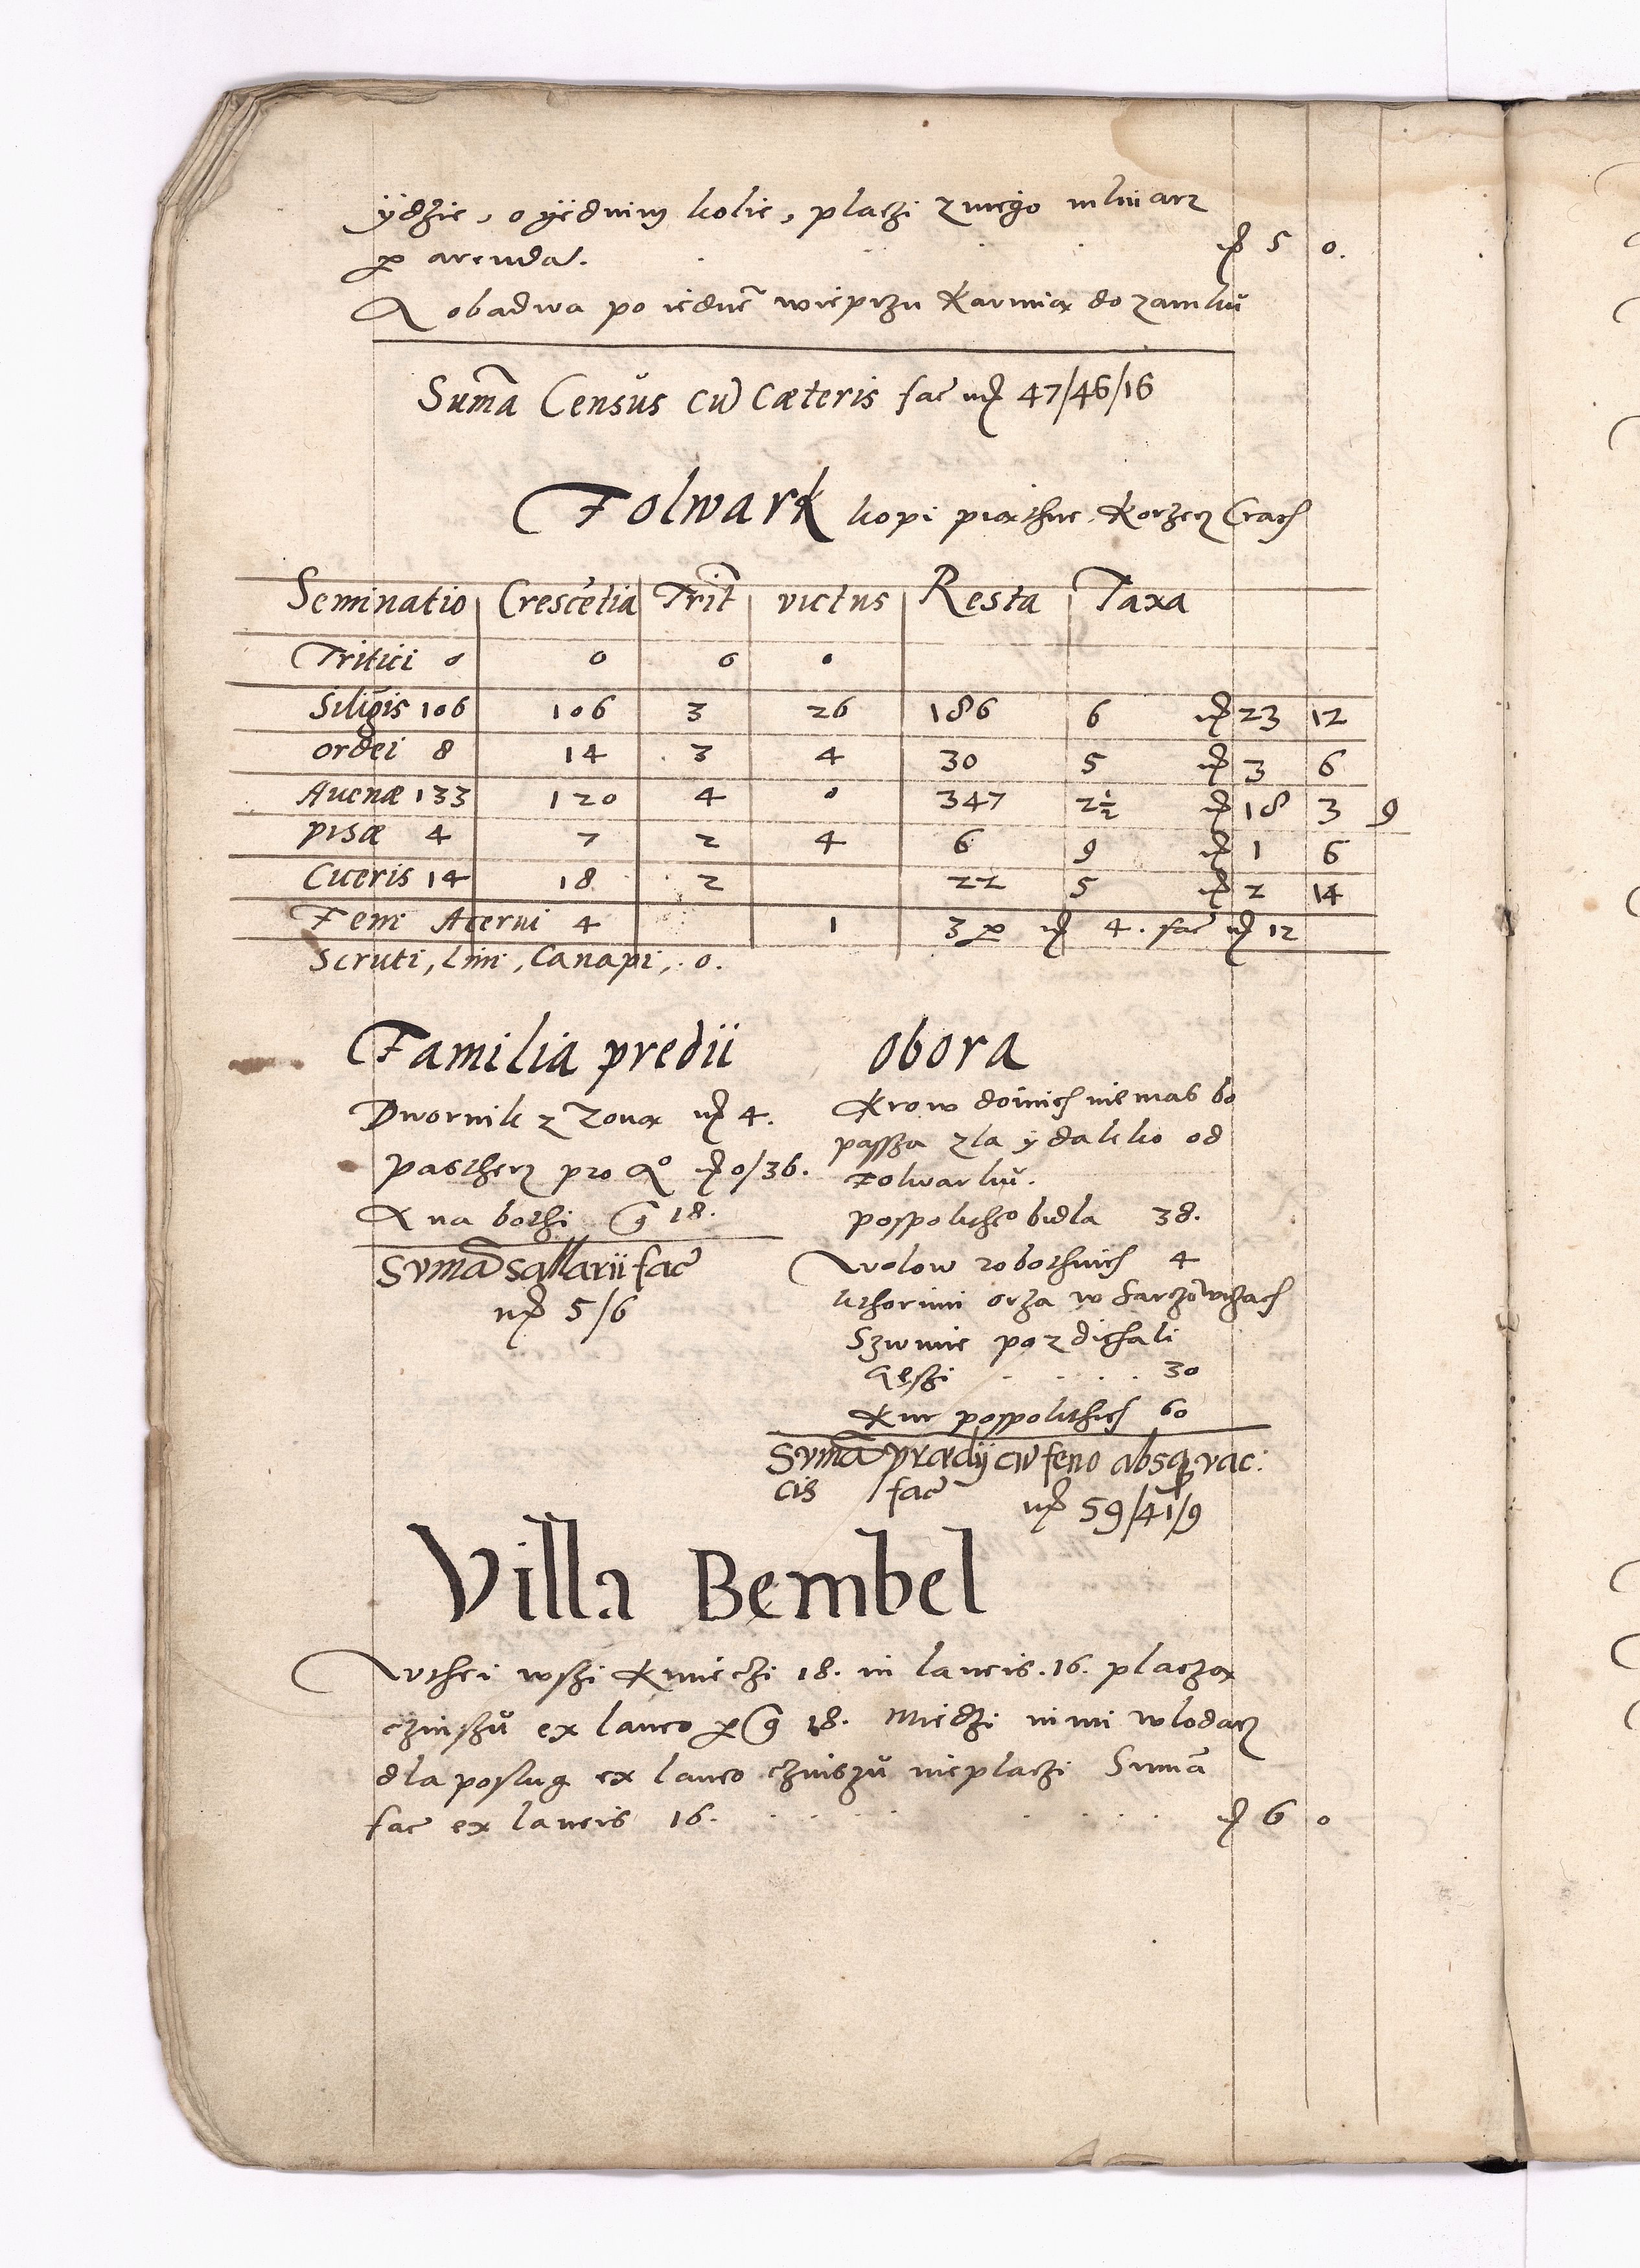 ÿdzie, o yednim kolie, placzi z niego mlinarz
per arenda. m̃ 5 0.
A obadwa po iednẽ wieprzu Karmią do zamku
Sum̃a Censůs cũ cæteris fac̃ m̃ 47/46/16
Folwark kopi piąthne, Korzecz Crach
Seminatio Crescẽtia Trit̃ victus Resta Taxa
Tritici 0 0 0 0
Siligĩs 106 106 3 26 186 6 m̃ 23 12
ordei 8 14 3 4 30 5 m̃ 3 6
Auenæ 133 120 4 0 347 2½ m̃ 18 3 9
pisæ 4 7 2 4 6 9 m̃ 1 6
Ciceris 14 18 2 22 5 m̃ 2 14
Feni Acerui 4 1 3 per m̃ 4. fac̃ m̃ 12
Scruti, Lini, Canapi, 0.
Familia predii
Dwornik z Zoną m̃ 4.
Pastherz pro Aº m̃ 0/36.
A na bothi g 18.
Svmã sallarii fac̃
m̃ 5/6
obora
Krow doinich niemas bo
passza zla ÿ daleko od
Folwarků.
pospolithº bidla 38.
wolow robothnich 4
kthorimi orza w Sarzowiczach
Szwinie pozdichali
Gęszi . . . . 30
Kur pospolithich 60
Svmã prædij cũ feno absq vac:
cis fac̃ m̃ 59/41/9
Villa Bembel
W thei wszi Kmieczi 18. in laneis. 16. placzą
czinszů ex laneo per g 18. Miedzi nimi wlodarz
dla poslug ex laneo czinszů nieplaczi Sum̃a
fac̃ ex laneis 16. . . . . . . . . m̃ 6 0